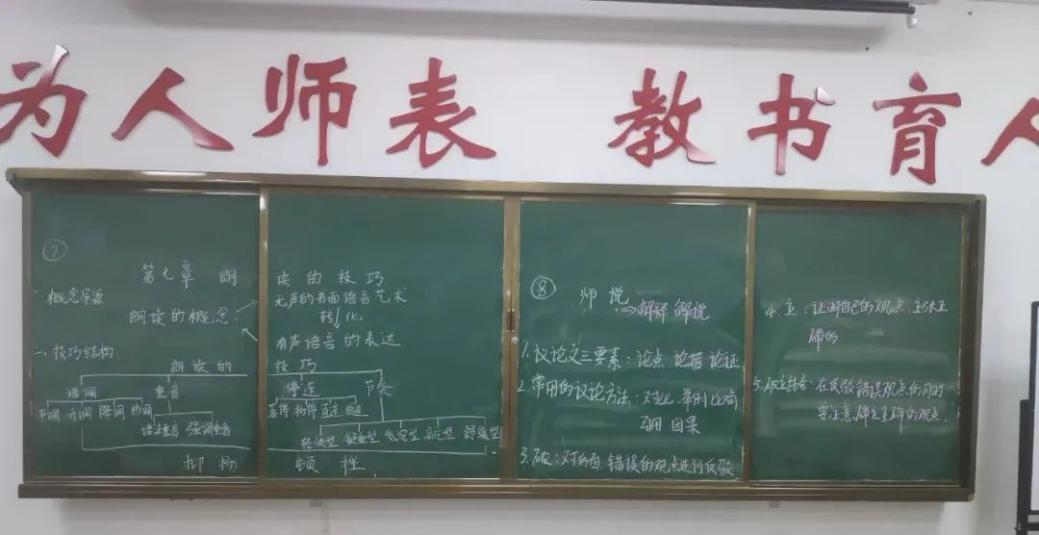 为人师表 教书育人
⑦
第七章 朗读的技巧
一、概念
朗读的概念
无声的书面语言艺术
转化
有声语言的表达
二、技巧结构:
朗读的技巧
语调 重音 停连 节奏
平调 升调 降调 曲调
语法重音 强调重音
轻快型 凝重型 低沉型 高亢型 舒缓型
抑扬顿挫
⑧
师说
解释 解说
1.议论文三要素:论点 论据 论证
2.常用的议论方法:对比 举例 比喻
引用 因果
3.破:对片面 错误的观点进行反驳
4.立:证明自己的观点是正
确的
5.破立结合:在反驳错误观点的同时
要注意树立正确的观点.